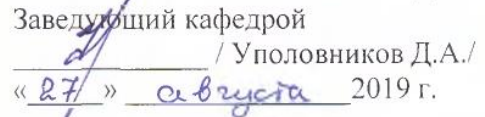 Заведующий кафедрой
/ Уполовников Д.А./
« 27 » августа 2019 г.